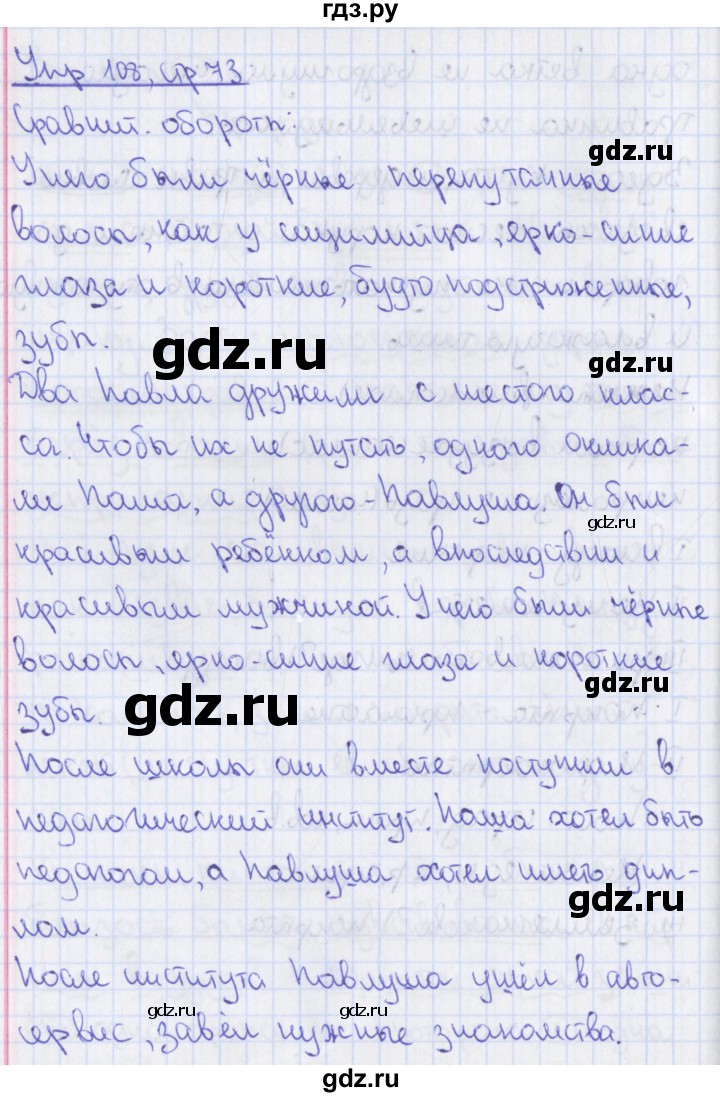 гдз.ру
Упр 108, стр 73
Сравнит. обороты:
gdz.ru
У него были чёрные перепутанные
волосы, как у сицилийца, ярко-синие
gdz.ru
глаза и короткие, будто подстриженные,
зубы.
gdz.ru
gdz.ru
Два Павла дружили с шестого клас-
са. Чтобы их не путать, одного оклика-
ли Паша, а другого - Павлуша. Он был
gdz.ru
красивым ребёнком, а впоследствии и
красивым мужчиной. У него были чёрные
волосы, ярко-синие глаза и короткие
gdz.ru
зубы.
gdz.ru
После школы они вместе поступили в
педагогический институт. Паша хотел быть
педагогом, а Павлуша хотел иметь дип-
gdz.ru
лом.
После института Павлуша ушёл в авто-
gdz.ru gdz.ru
сервис, завёл нужные знакомства.
gdz.ru